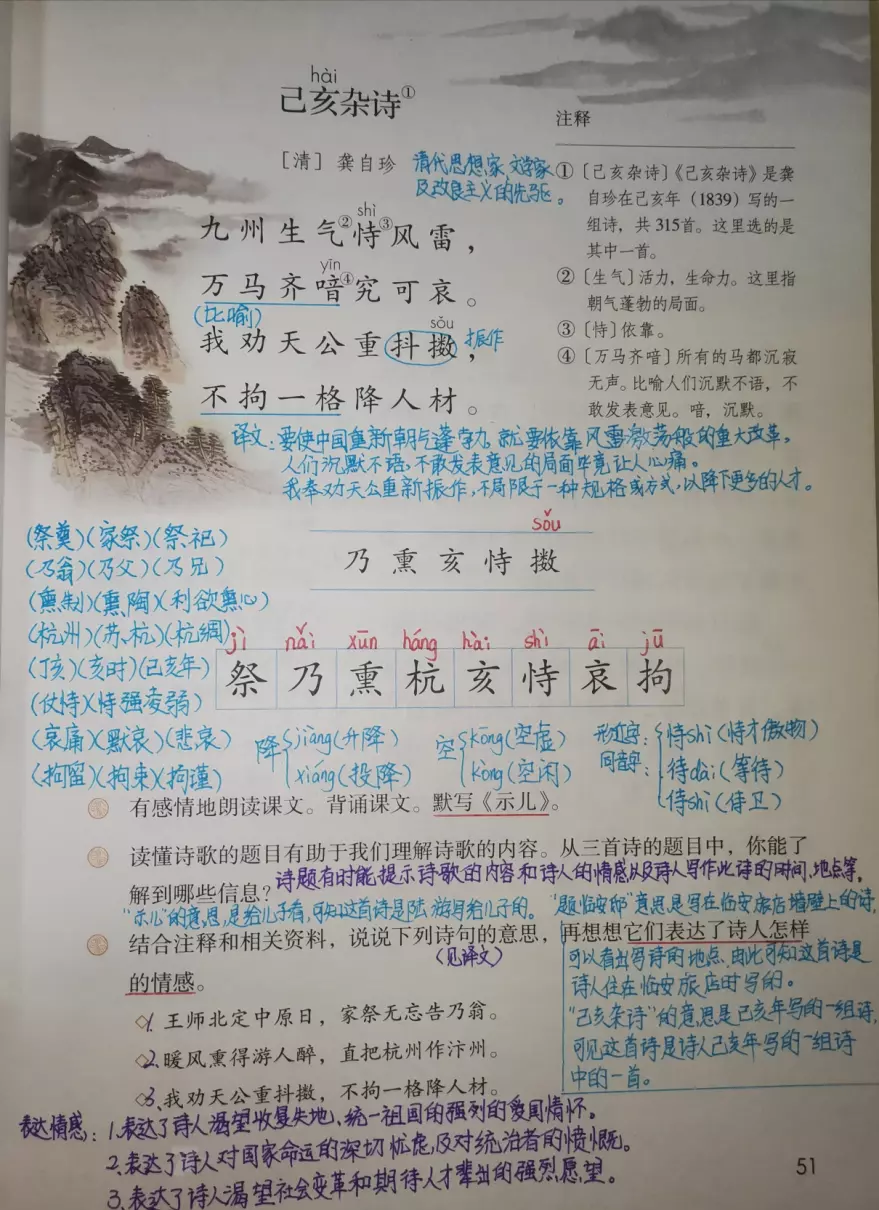 hài
己亥杂诗①
[清] 龚自珍
清代思想家、文学家
及改良主义的先驱。
shì
九州生气②恃③风雷，
yīn
万马齐喑④究可哀。
(比喻)
sǒu
我劝天公重抖擞，
振作
不拘一格降人材。
注释
①〔己亥杂诗〕《己亥杂诗》是龚
自珍在己亥年（1839）写的一
组诗，共315首。这里选的是
其中一首。
②〔生气〕活力，生命力。这里指
朝气蓬勃的局面。
③〔恃〕依靠。
④〔万马齐喑〕所有的马都沉寂
无声。比喻人们沉默不语，不
敢发表意见。喑，沉默。
译文：要使中国重新朝气蓬勃，就要依靠风雷激荡般的重大改革，
人们沉默不语，不敢发表意见的局面毕竟让人心痛。
我奉劝天公重新振作，不局限于一种规格或方式，以降下更多的人才。
(祭奠)(家祭)(祭祀)
(乃翁)(乃父)(乃兄)
(熏制)(熏陶)(利欲熏心)
(杭州)(苏、杭)(杭绸)
(丁亥)(亥时)(己亥年)
(仗恃)(恃强凌弱)
(哀痛)(默哀)(悲哀)
(拘留)(拘束)(拘谨)
sǒu
乃 熏 亥 恃 擞
jì nǎi xūn háng hài shì āi jū
祭 乃 熏 杭 亥 恃 哀 拘
降 jiàng(升降)
xiáng(投降)
空 kōng(空虚)
kòng(空闲)
形近字：恃shì(恃才傲物)
同音字：待dài(等待)
侍shì(侍卫)
有感情地朗读课文。背诵课文。默写《示儿》。
读懂诗歌的题目有助于我们理解诗歌的内容。从三首诗的题目中，你能了
解到哪些信息？
诗题有时能提示诗歌的内容和诗人的情感以及诗人写作此诗的时间、地点等。
"示儿"的意思，是给儿子看，可知这首诗是陆游写给儿子的。"题临安邸"意思是写在临安旅店墙壁上的诗，
可以看出写诗的地点，由此可知这首诗是
诗人住在临安旅店时写的。
"己亥杂诗"的意思是己亥年写的一组诗，
可见这首诗是诗人己亥年写的一组诗
中的一首。
结合注释和相关资料，说说下列诗句的意思，再想想它们表达了诗人怎样
的情感。
(见译文)
1.王师北定中原日，家祭无忘告乃翁。
2.暖风熏得游人醉，直把杭州作汴州。
3.我劝天公重抖擞，不拘一格降人材。
表达情感：1.表达了诗人渴望收复失地、统一祖国的强烈的爱国情怀。
2.表达了诗人对国家命运的深切忧虑，及对统治者的愤恨。
3.表达了诗人渴望社会变革和期待人才辈出的强烈愿望。
51